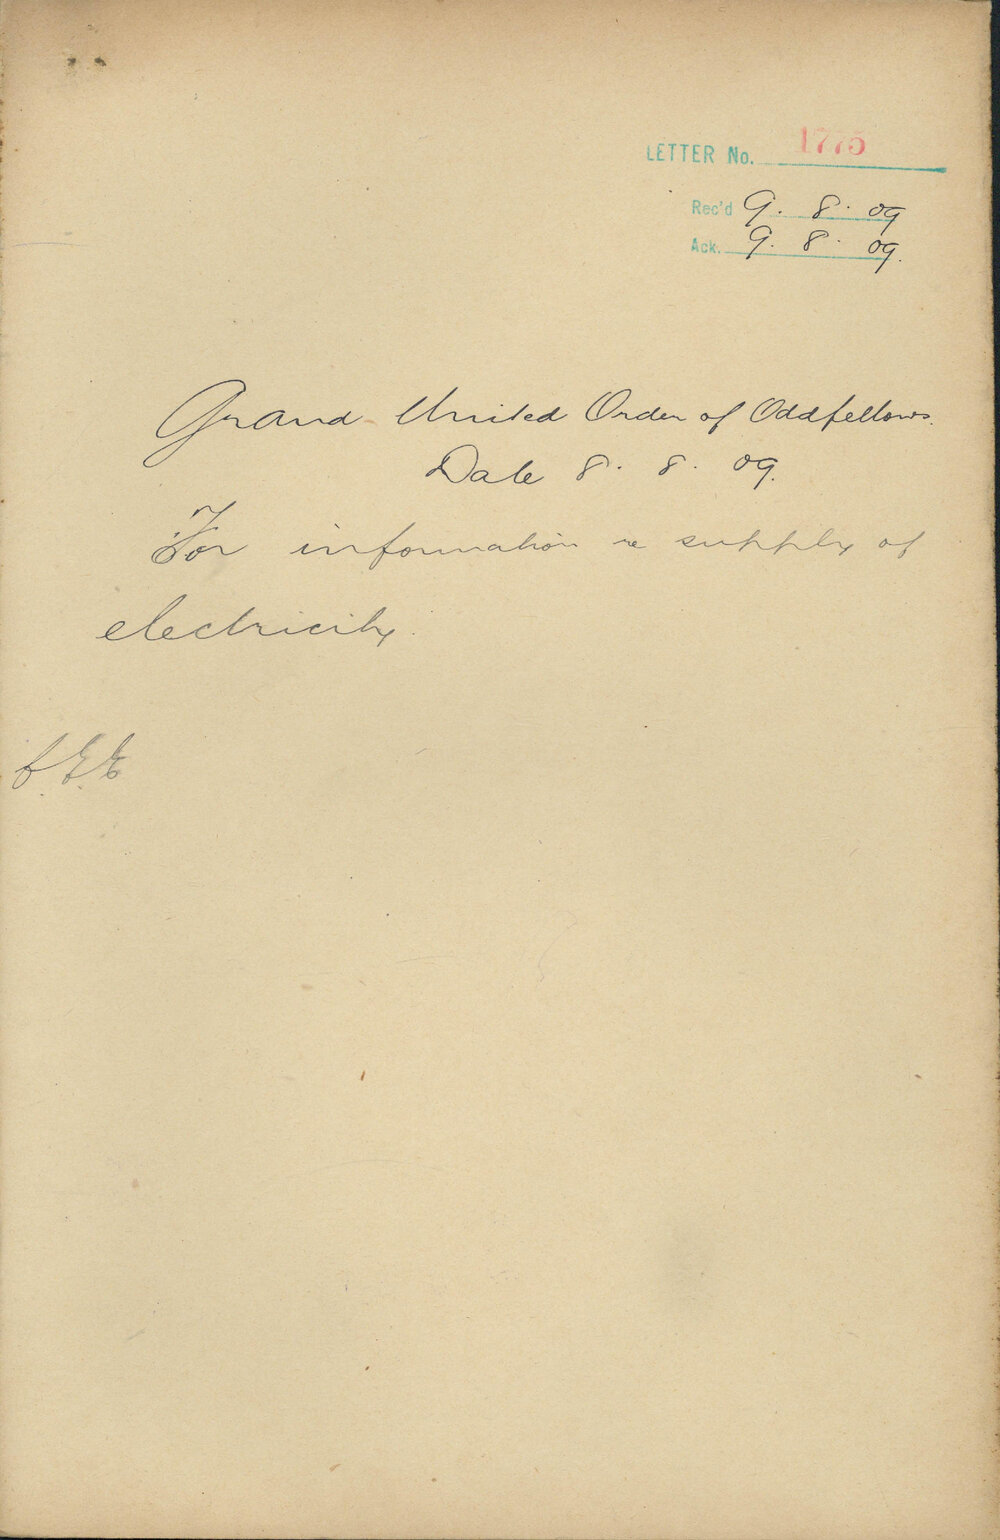 LETTER No. 1775
Rec'd 9. 8. 09
Ack. 9. 8. 09.
Grand United Order of Oddfellows.
Date 8. 8. 09.
For information re supply of
electricity.